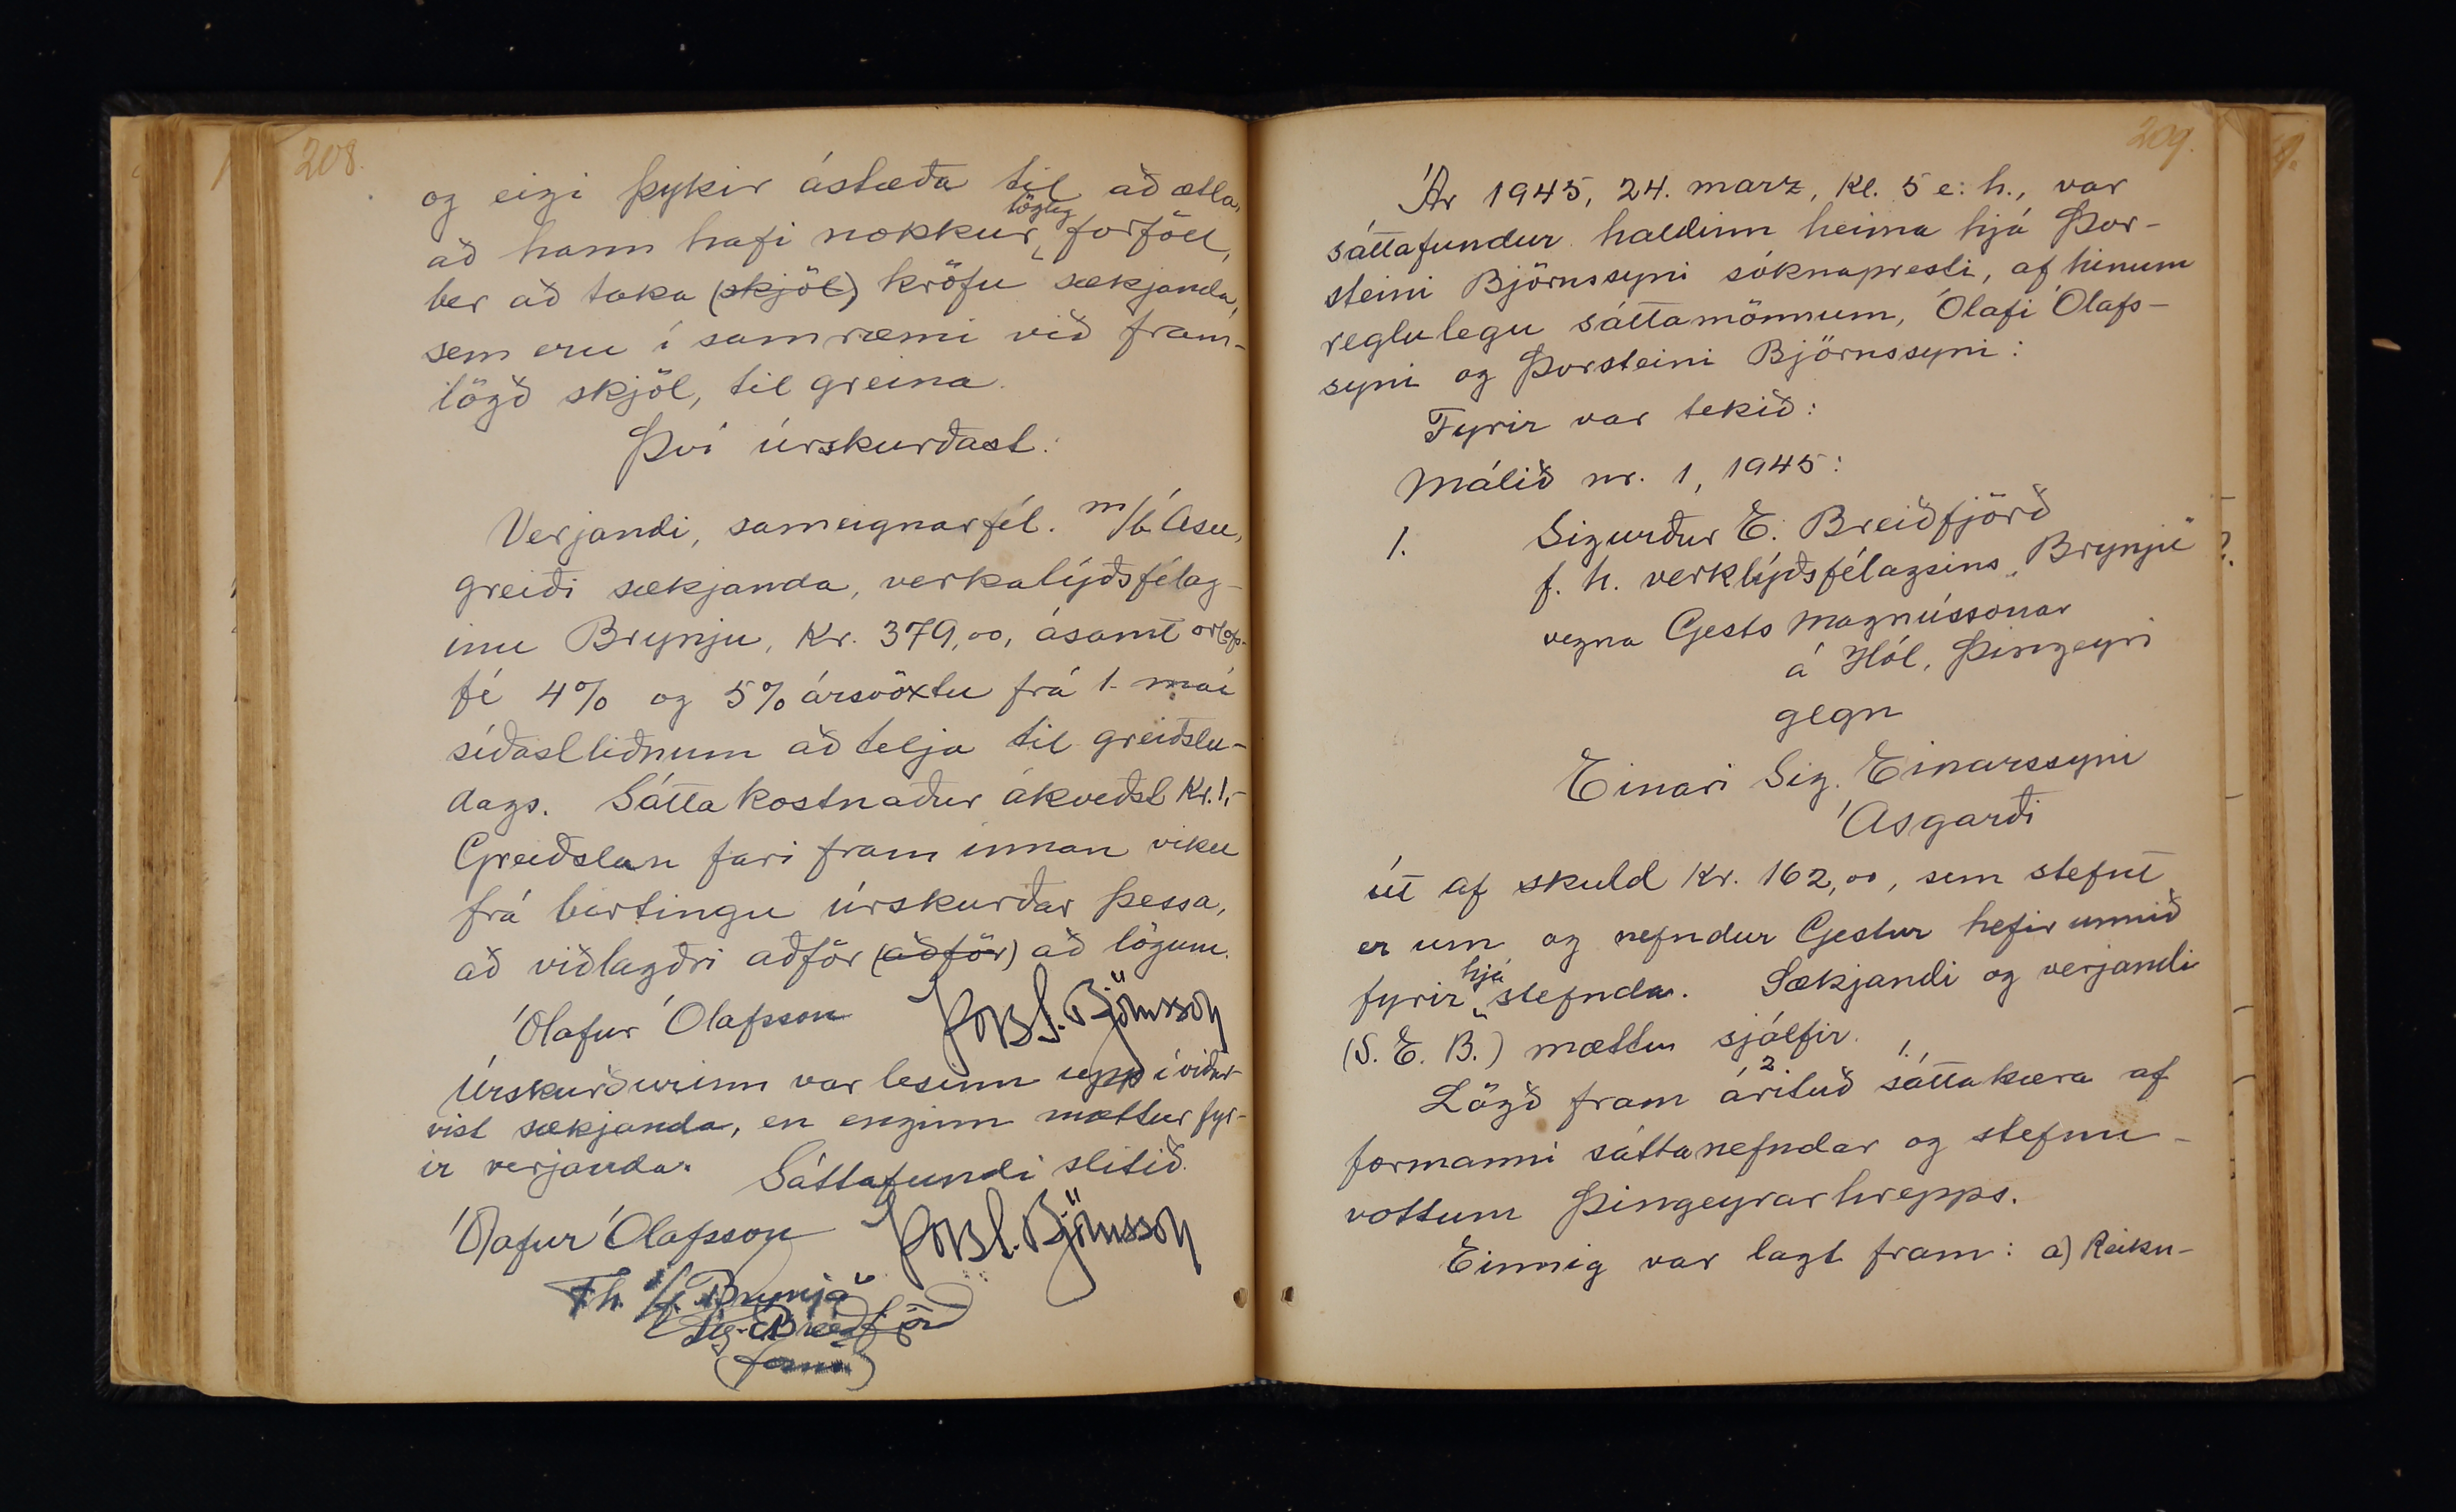 208.
og eigi þykir ástæða til að ætla,
að hann hafi nokkur lögleg forföll,
ber að taka (skjöl) kröfu sækjanda,
sem eru í samræmi við fram-
lögð skjöl, til greina.
Því úrskurðast:
Verjandi, sameignarfél. m/b Ásu,
greiði sækjanda, verkalýðsfélag-
inu Brynju, Kr. 379,00, ásamt orlofs-
fé 4% og 5% ársvöxtu frá 1. maí
síðastliðnum að telja til greiðslu-
dags. Sáttakostnaður ákveðst Kr. 1,-
Greiðslan fari fram innan viku
frá birtingu úrskurðar þessa,
að viðlagðri aðför (aðför) að lögum.
Ólafur Ólafsson Þorst. Björnsson
Úrskurðurinn var lesinn upp í viður-
vist sækjanda, en enginn mættur fyr-
ir verjanda. Sáttafundi slitið.
Ólafur Ólafsson Þorst. Björnsson
F.h. v/f. "Brynja"
Sig. E. Breiðfjörð
(form.)
209.
Ár 1945, 24. marz, Kl. 5 e: h., var
sáttafundur haldinn heima hjá Þor-
steini Björnssyni sóknapresti, af hinum
reglulegu sáttamönnum, Ólafi Ólafs-
syni og Þorsteini Björnssyni:
Fyrir var tekið:
Málið nr. 1, 1945:
1. Sigurður E. Breiðfjörð
f. h. verklýðsfélagsins „Brynju"
vegna Gests Magnússonar
á Hól, Þingeyri
gegn
Einari Sig. Einarssyni
Ásgarði
út af skuld Kr. 162,00, sem stefnt
er um og nefndur Gestur hefir unnið
fyrir hjá stefnda. Sækjandi og verjandi
(S. E. B.) mættu sjálfir.
Lögð fram 2 árituð 1. sáttakæra af
formanni sáttanefndar og stefnu-
vottum Þingeyrarhrepps.
Einnig var lagt fram: a) Reikn-